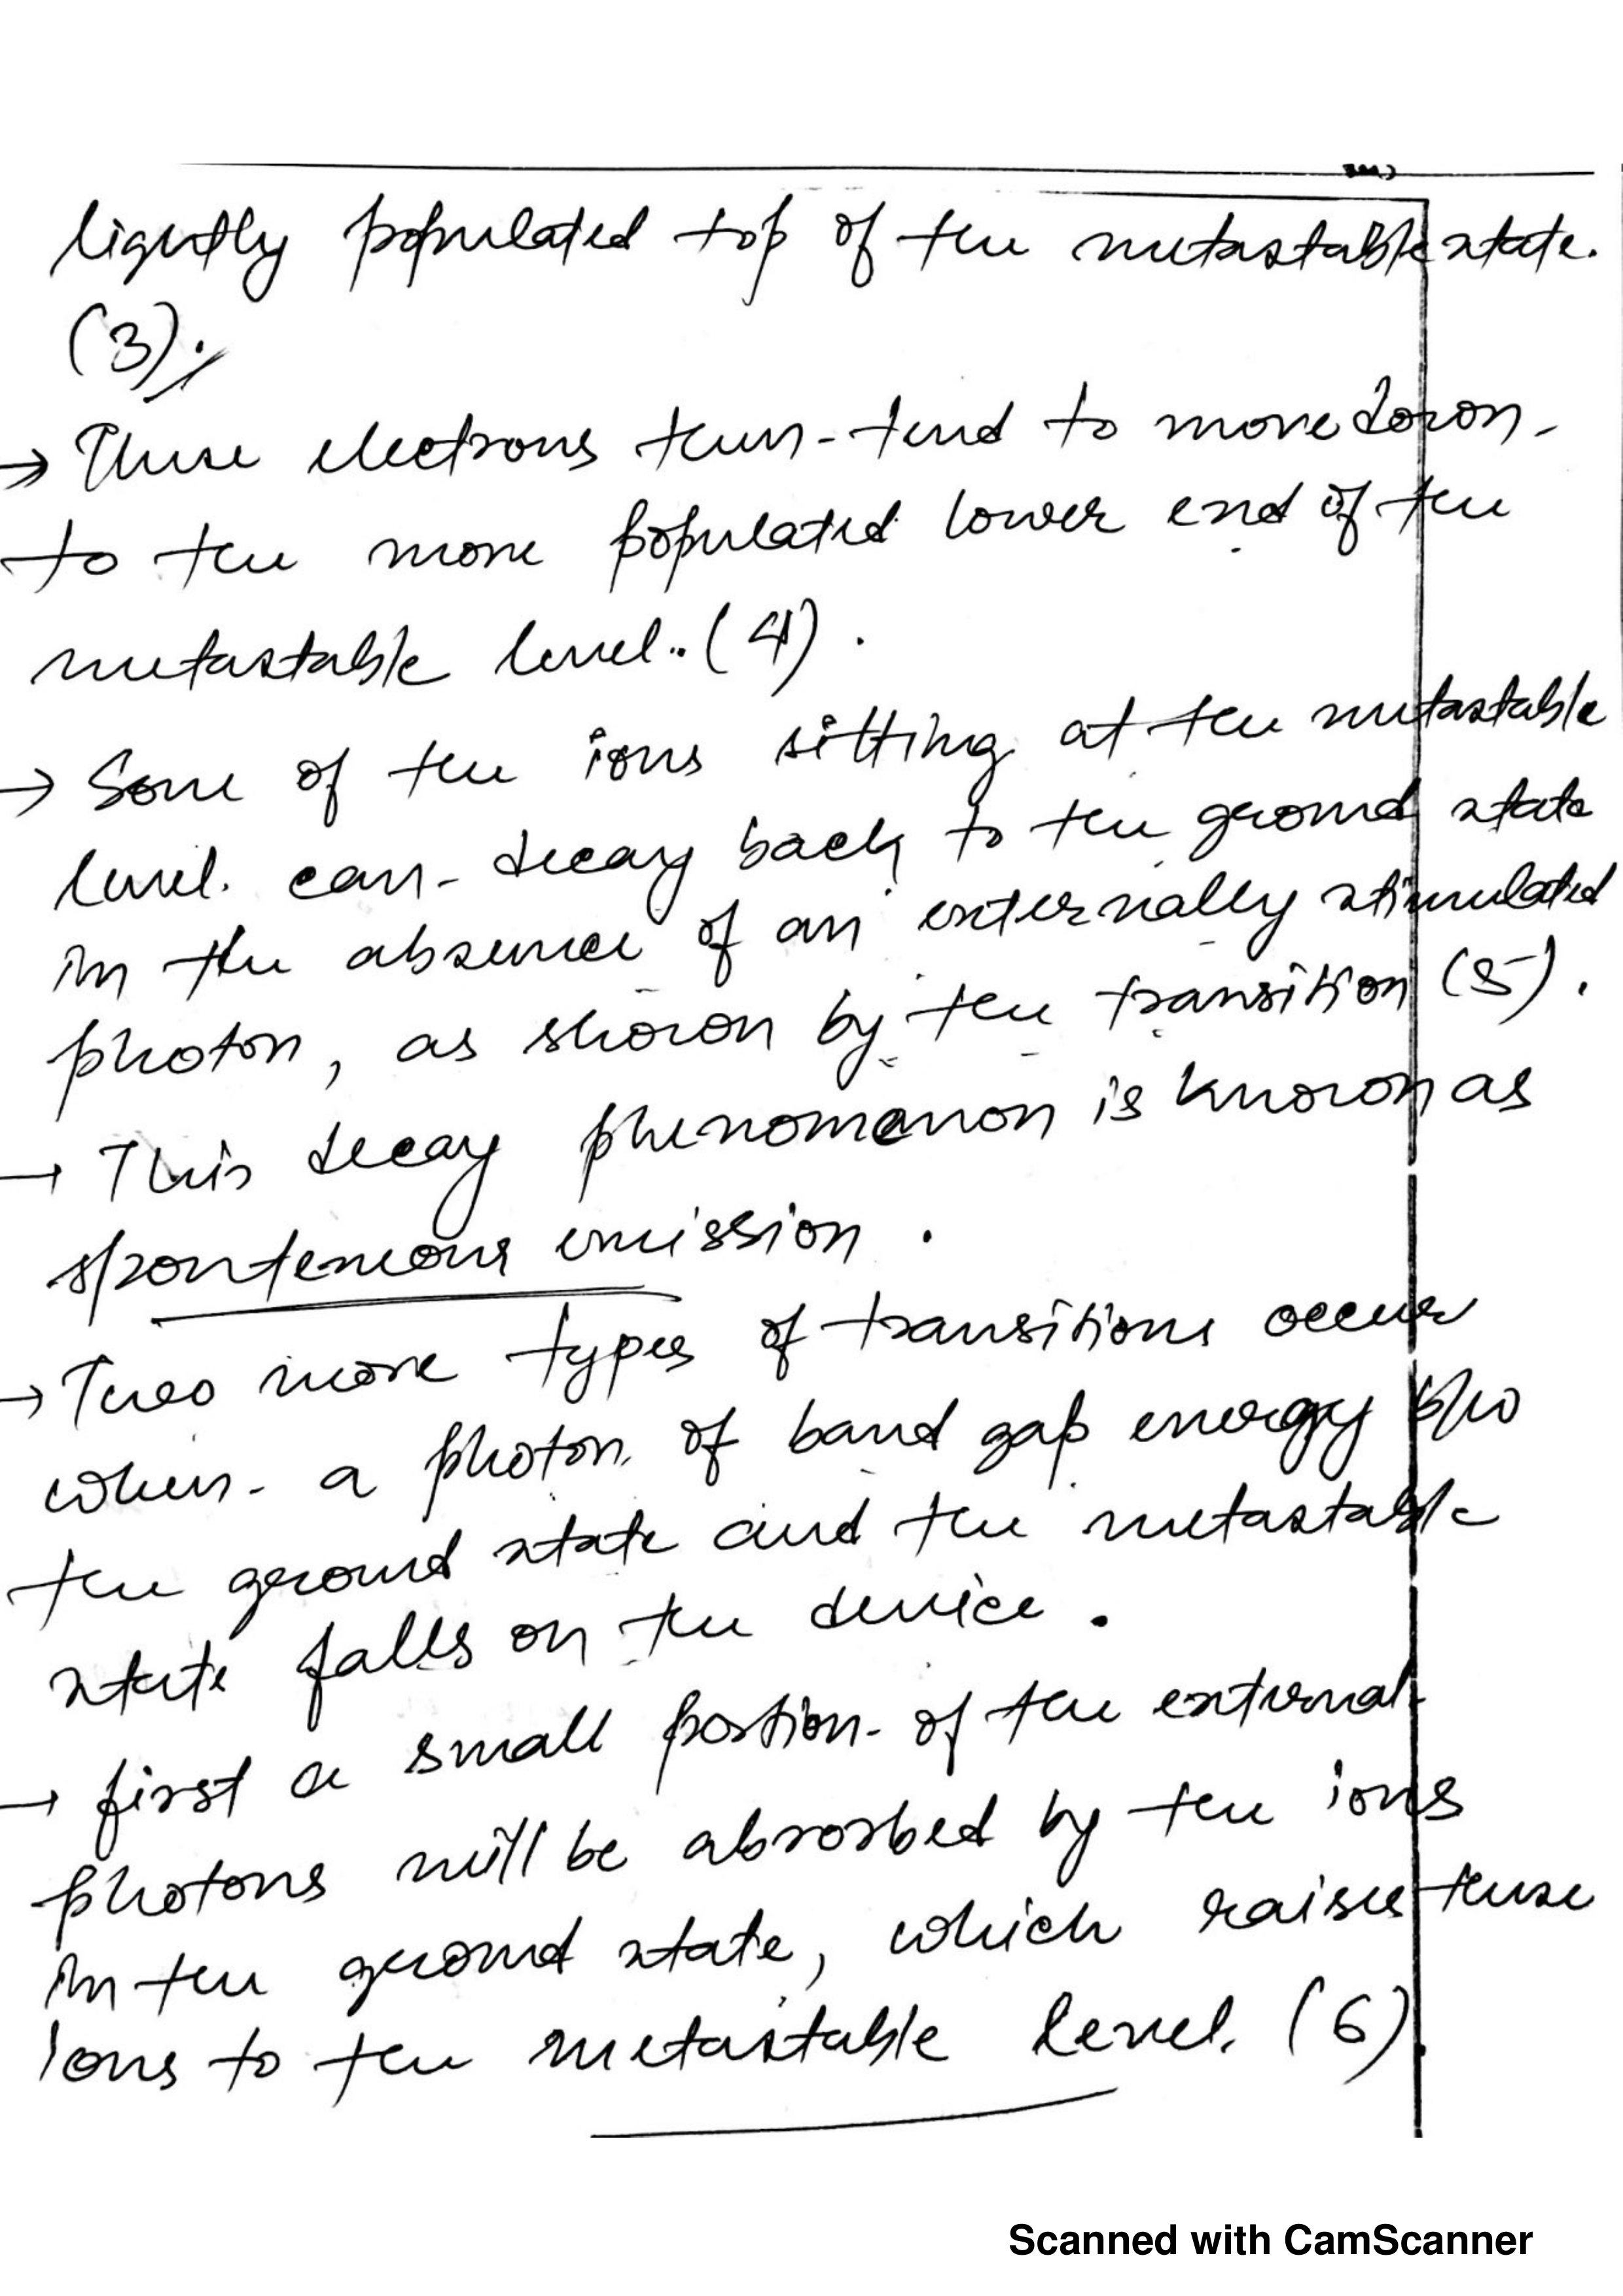 lightly populated top of the metastable state.
(3).
→ These electrons then tend to move down
to the more populated lower end of the
metastable level. (4).
→ Some of the ions sitting at the metastable
level. can decay back to the ground state
in the absence of an externally stimulated
photon, as shown by the transition (5).
→ This decay phenomenon is known as
sponteneous emission.
→ Two more types of transitions occur
when a photon of band gap energy b/w
the ground state and the metastable
state falls on the device.
→ first a small portion of the external
photons will be absorbed by the ions
in the ground state, which raises these
ions to the metastable level. (6)
Scanned with CamScanner